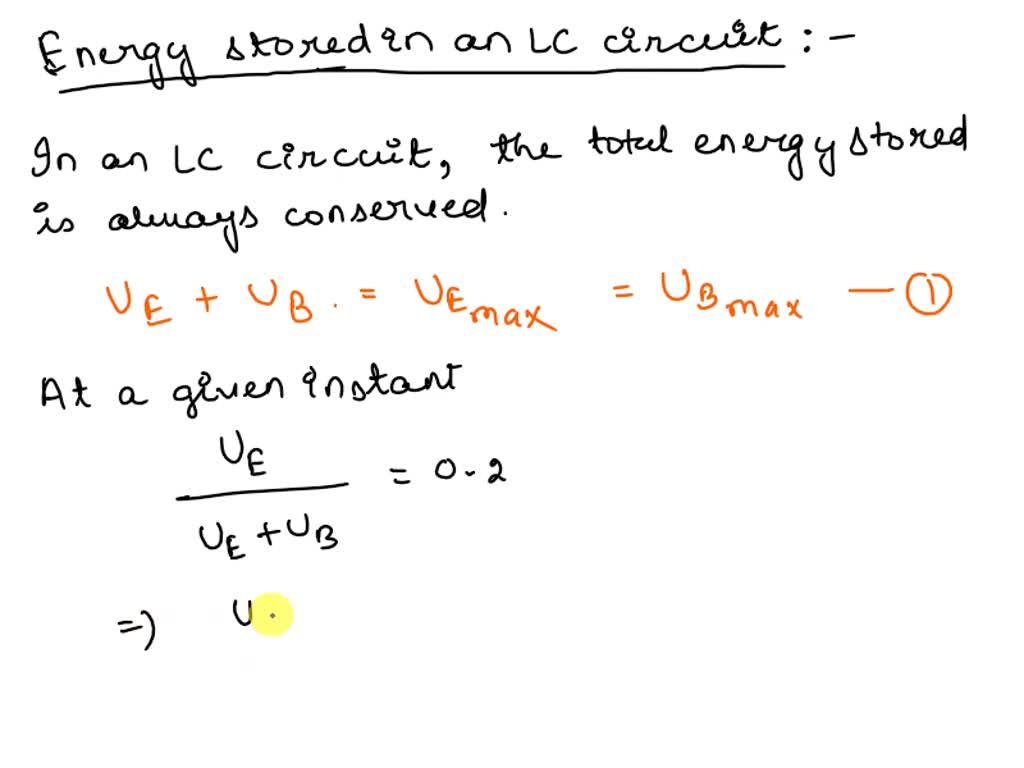 Energy stored in an LC circuit : -
In an LC circuit, the total energy stored
is always conserved.
U_E + U_B . = U_E max = U_B max — ①
At a given instant
U_E
U_E + U_B
= 0.2
=) U.